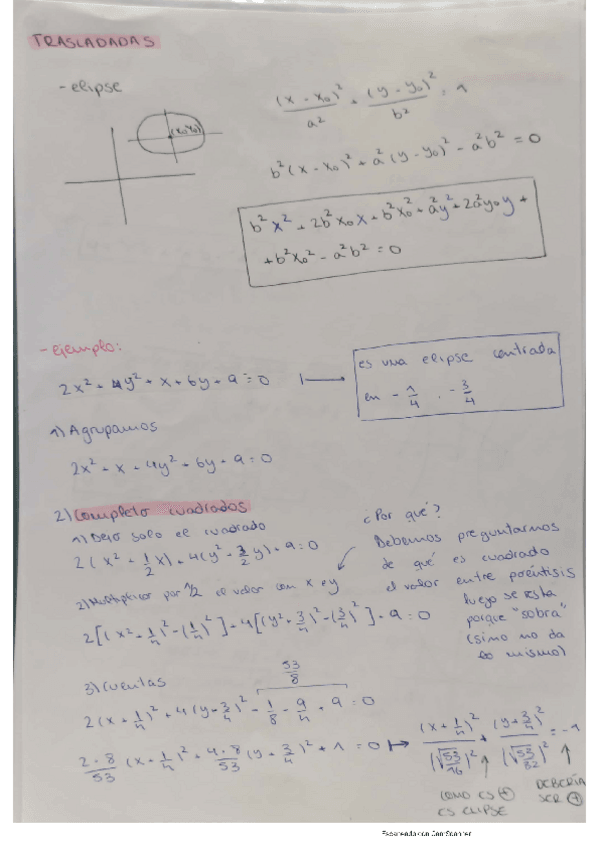 TRASLADADAS
- elipse
(x₀,y₀)
(x - x₀)²/a² + (y - y₀)²/b² = 1
b²(x - x₀)² + a²(y - y₀)² - a²b² = 0
b²x² + 2b²x₀x + b²x₀² + a²y² + 2a²y₀y +
+ b²x₀² - a²b² = 0
- ejemplo:
2x² + 4y² + x + 6y + 9 = 0 ⟼
es una elipse centrada
en - 1/4 . - 3/4
1) Agrupamos
2x² + x + 4y² + 6y + 9 = 0
2) Completo cuadrados
1) Dejo solo el cuadrado
2(x² + 1/2 x) + 4(y² - 3/2 y) + 9 = 0
2) Multiplicar por 1/2 el valor con x e y
2[(x² + 1/4)² - (1/4)²] + 4[(y² + 3/4)² - (3/4)²] + 9 = 0
¿Por qué?
Debemos preguntarnos
de qué es cuadrado
el valor entre paréntisis
luego se resta
porque "sobra"
(sino no da
lo mismo)
3) Cuentas
53/8
2(x + 1/4)² + 4(y - 3/4)² - 1/8 - 9/4 + 9 = 0
2·8/53 (x + 1/4)² + 4·8/53 (y + 3/4)² + 1 = 0 ⟼ (x + 1/4)²/(√53/16)² + (y + 3/4)²/(√53/32)² = -1
COMO ES ⊕
ES ELIPSE
DEBERÍA
SER ⊕
Escaneado con CamScanner